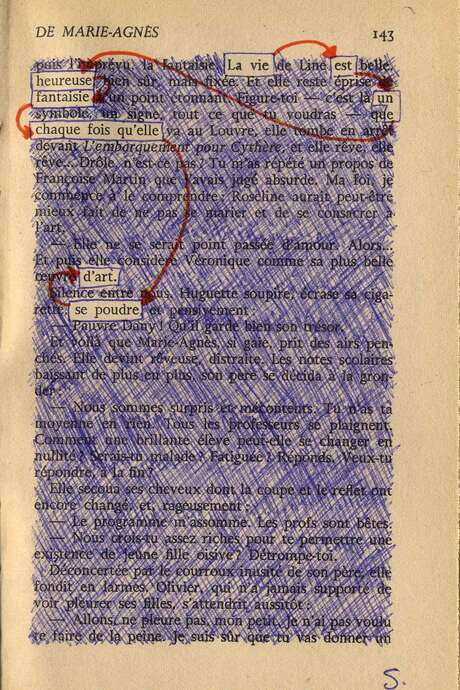 DE MARIE-AGNÈS 143
puis l'imprévu, la fantaisie. La vie de Line est belle,
heureuse bien sûr, mais fixée. Et elle reste éprise de
fantaisie à un point étonnant. Figure-toi — c'est là un
symbole, un signe, tout ce que tu voudras — que
chaque fois qu'elle va au Louvre, elle tombe en arrêt
devant L'embarquement pour Cythère, et elle rêve, elle
rêve... Drôle, n'est-ce pas ? Tu m'as répété un propos de
Françoise Martin que j'avais jugé absurde. Ma foi, je
commence à le comprendre : Roseline aurait peut-être
mieux fait de ne pas se marier et de se consacrer à
l'art.
— Elle ne se serait point passée d'amour. Alors...
Et puis elle considère Véronique comme sa plus belle
œuvre d'art.
Silence entre nous. Huguette soupire, écrase sa ciga-
rette, se poudre et pensivement :
— Pauvre Dany ! Qu'il garde bien son trésor.
Et voilà que Marie-Agnès, si gaie, prit des airs pen-
chés. Elle devint rêveuse, distraite. Les notes scolaires
baissant de plus en plus, son père se décida à la gron-
der :
— Nous sommes surpris et mécontents. Tu n'as ta
moyenne en rien. Tous les professeurs se plaignent.
Comment une brillante élève peut-elle se changer en
nullité ? Serais-tu malade ? Fatiguée ? Réponds. Veux-tu
répondre, à la fin ?
Elle secoua ses cheveux dont la coupe et le reflet ont
encore changé, et, rageusement :
— Le programme m'assomme. Les profs sont bêtes.
— Nous crois-tu assez riches pour te permettre une
existence de jeune fille oisive ? Détrompe-toi.
Déconcertée par le courroux inusité de son père, elle
fondit en larmes. Olivier, qui n'a jamais supporté de
voir pleurer ses filles, s'attendrit aussitôt :
— Allons, ne pleure pas, mon petit. Je n'ai pas voulu
te faire de la peine. Je suis sûr que tu vas donner un
S.